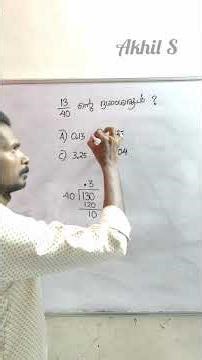 Akhil S
13/40 ന്റെ ദശാംശരൂപം ?
A) 0.13
C) 3.25
.3
40 130
120
10